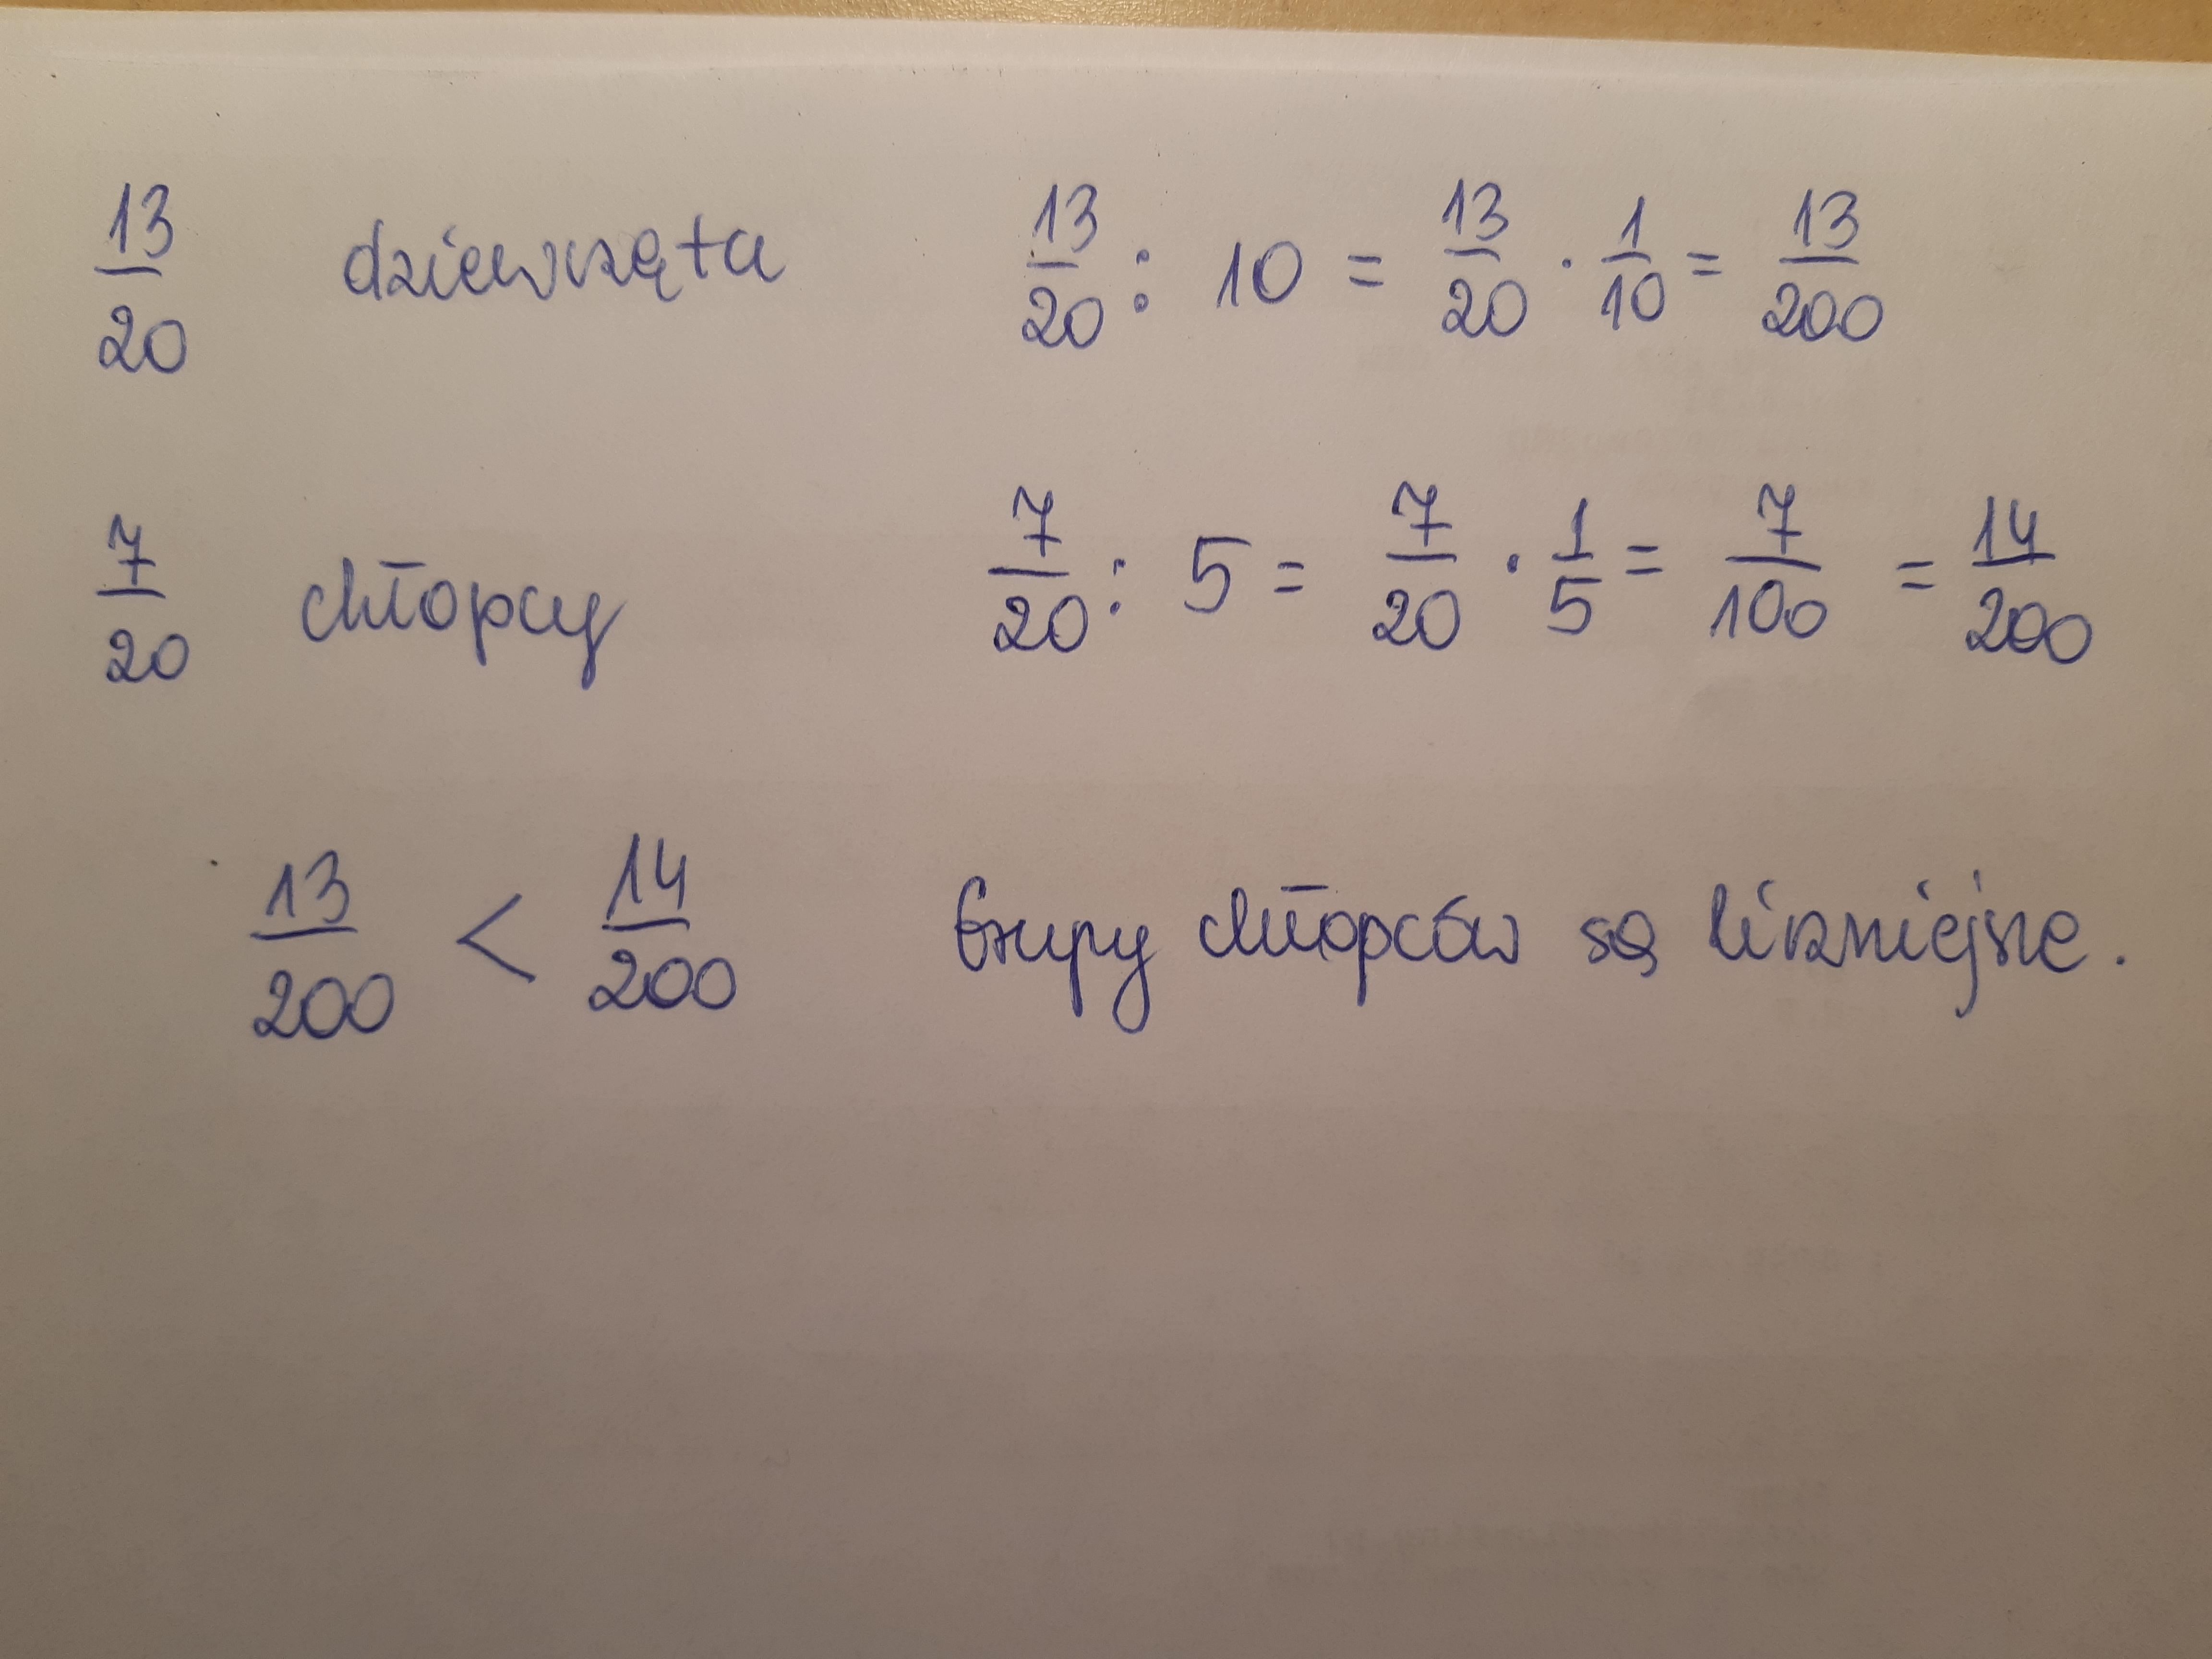 13/20 dziewczęta 13/20 : 10 = 13/20 · 1/10 = 13/200
7/20 chłopcy 7/20 : 5 = 7/20 · 1/5 = 7/100 = 14/200
13/200 < 14/200 Grupy chłopców są liczniejsze.